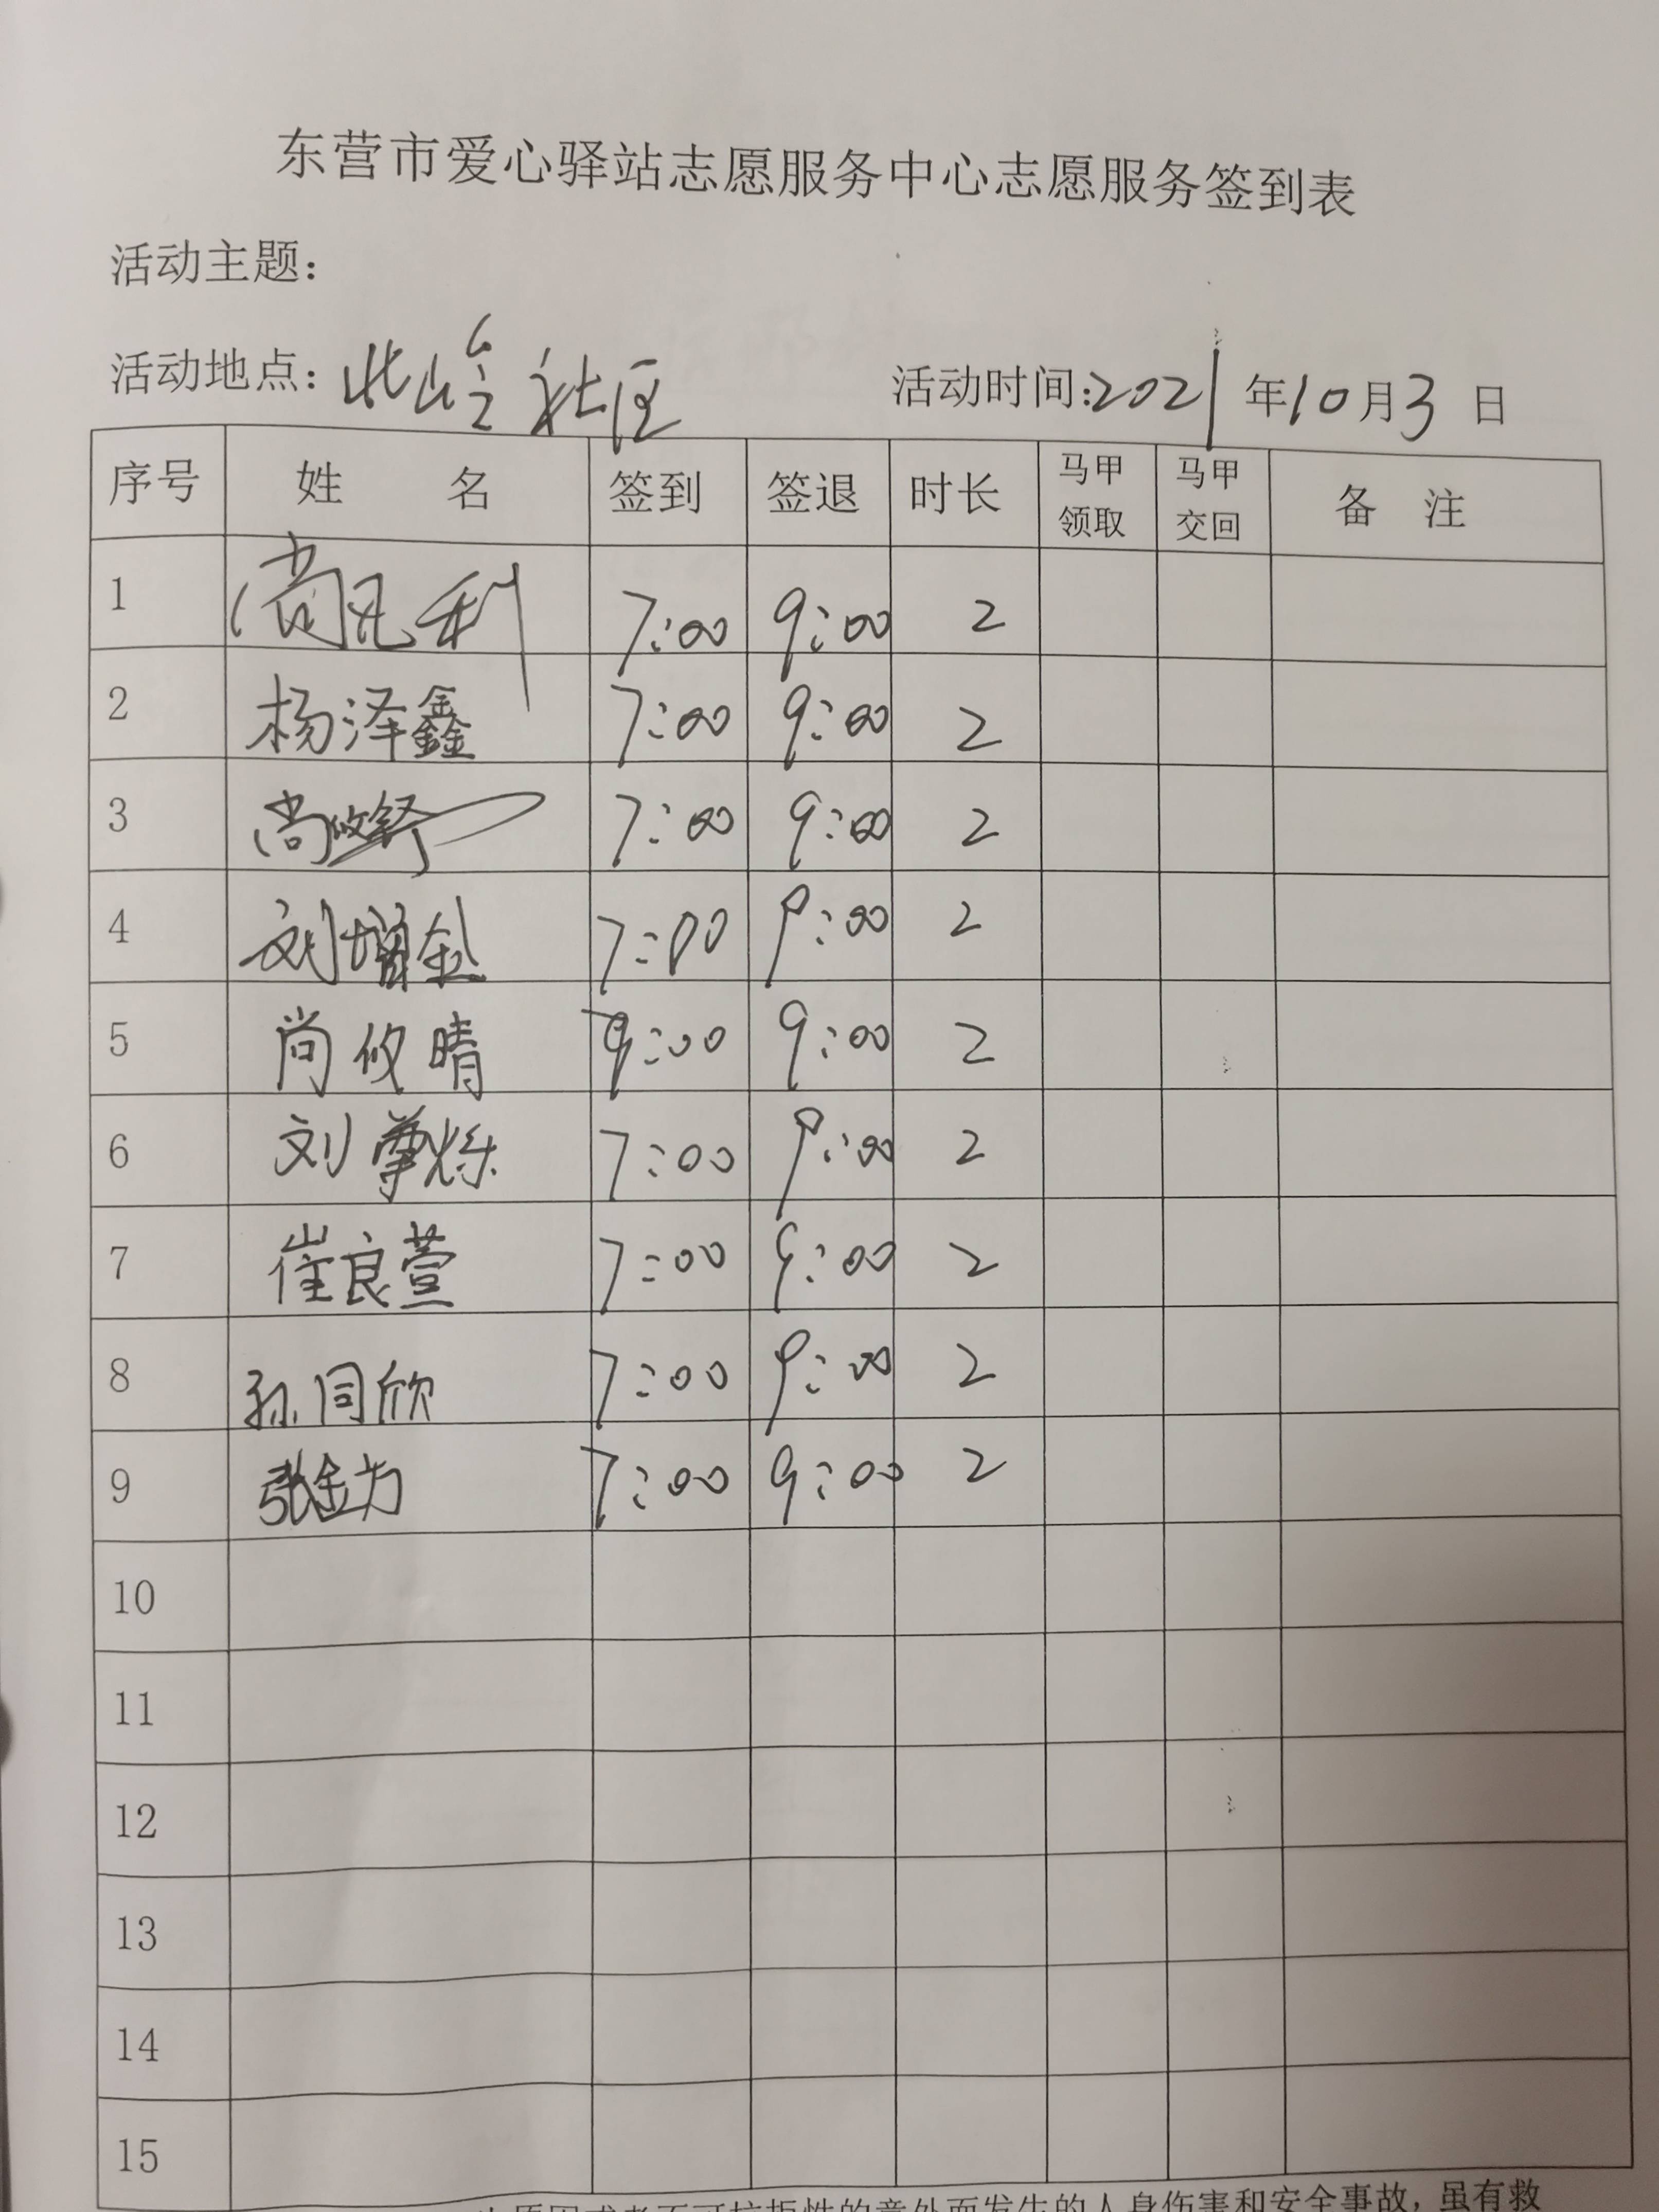 东营市爱心驿站志愿服务中心志愿服务签到表
活动主题：
活动地点： 社区 活动时间：2021年10月3日
序号 姓名 签到 签退 时长 马甲领取 马甲交回 备注
1 尚凡利 7:00 9:00 2
2 杨泽鑫 7:00 9:00 2
3 尚攸舒 7:00 9:00 2
4 刘增金 7:00 9:00 2
5 尚攸晴 :00 9:00 2
6 刘 烁 7:00 9:00 2
7 崔良萱 7:00 9:00 2
8 孙同欣 7:00 9:00 2
9 张金力 7:00 9:00 2
10
11
12
13
14
15
意外而发生的人身伤害和安全事故，虽有救